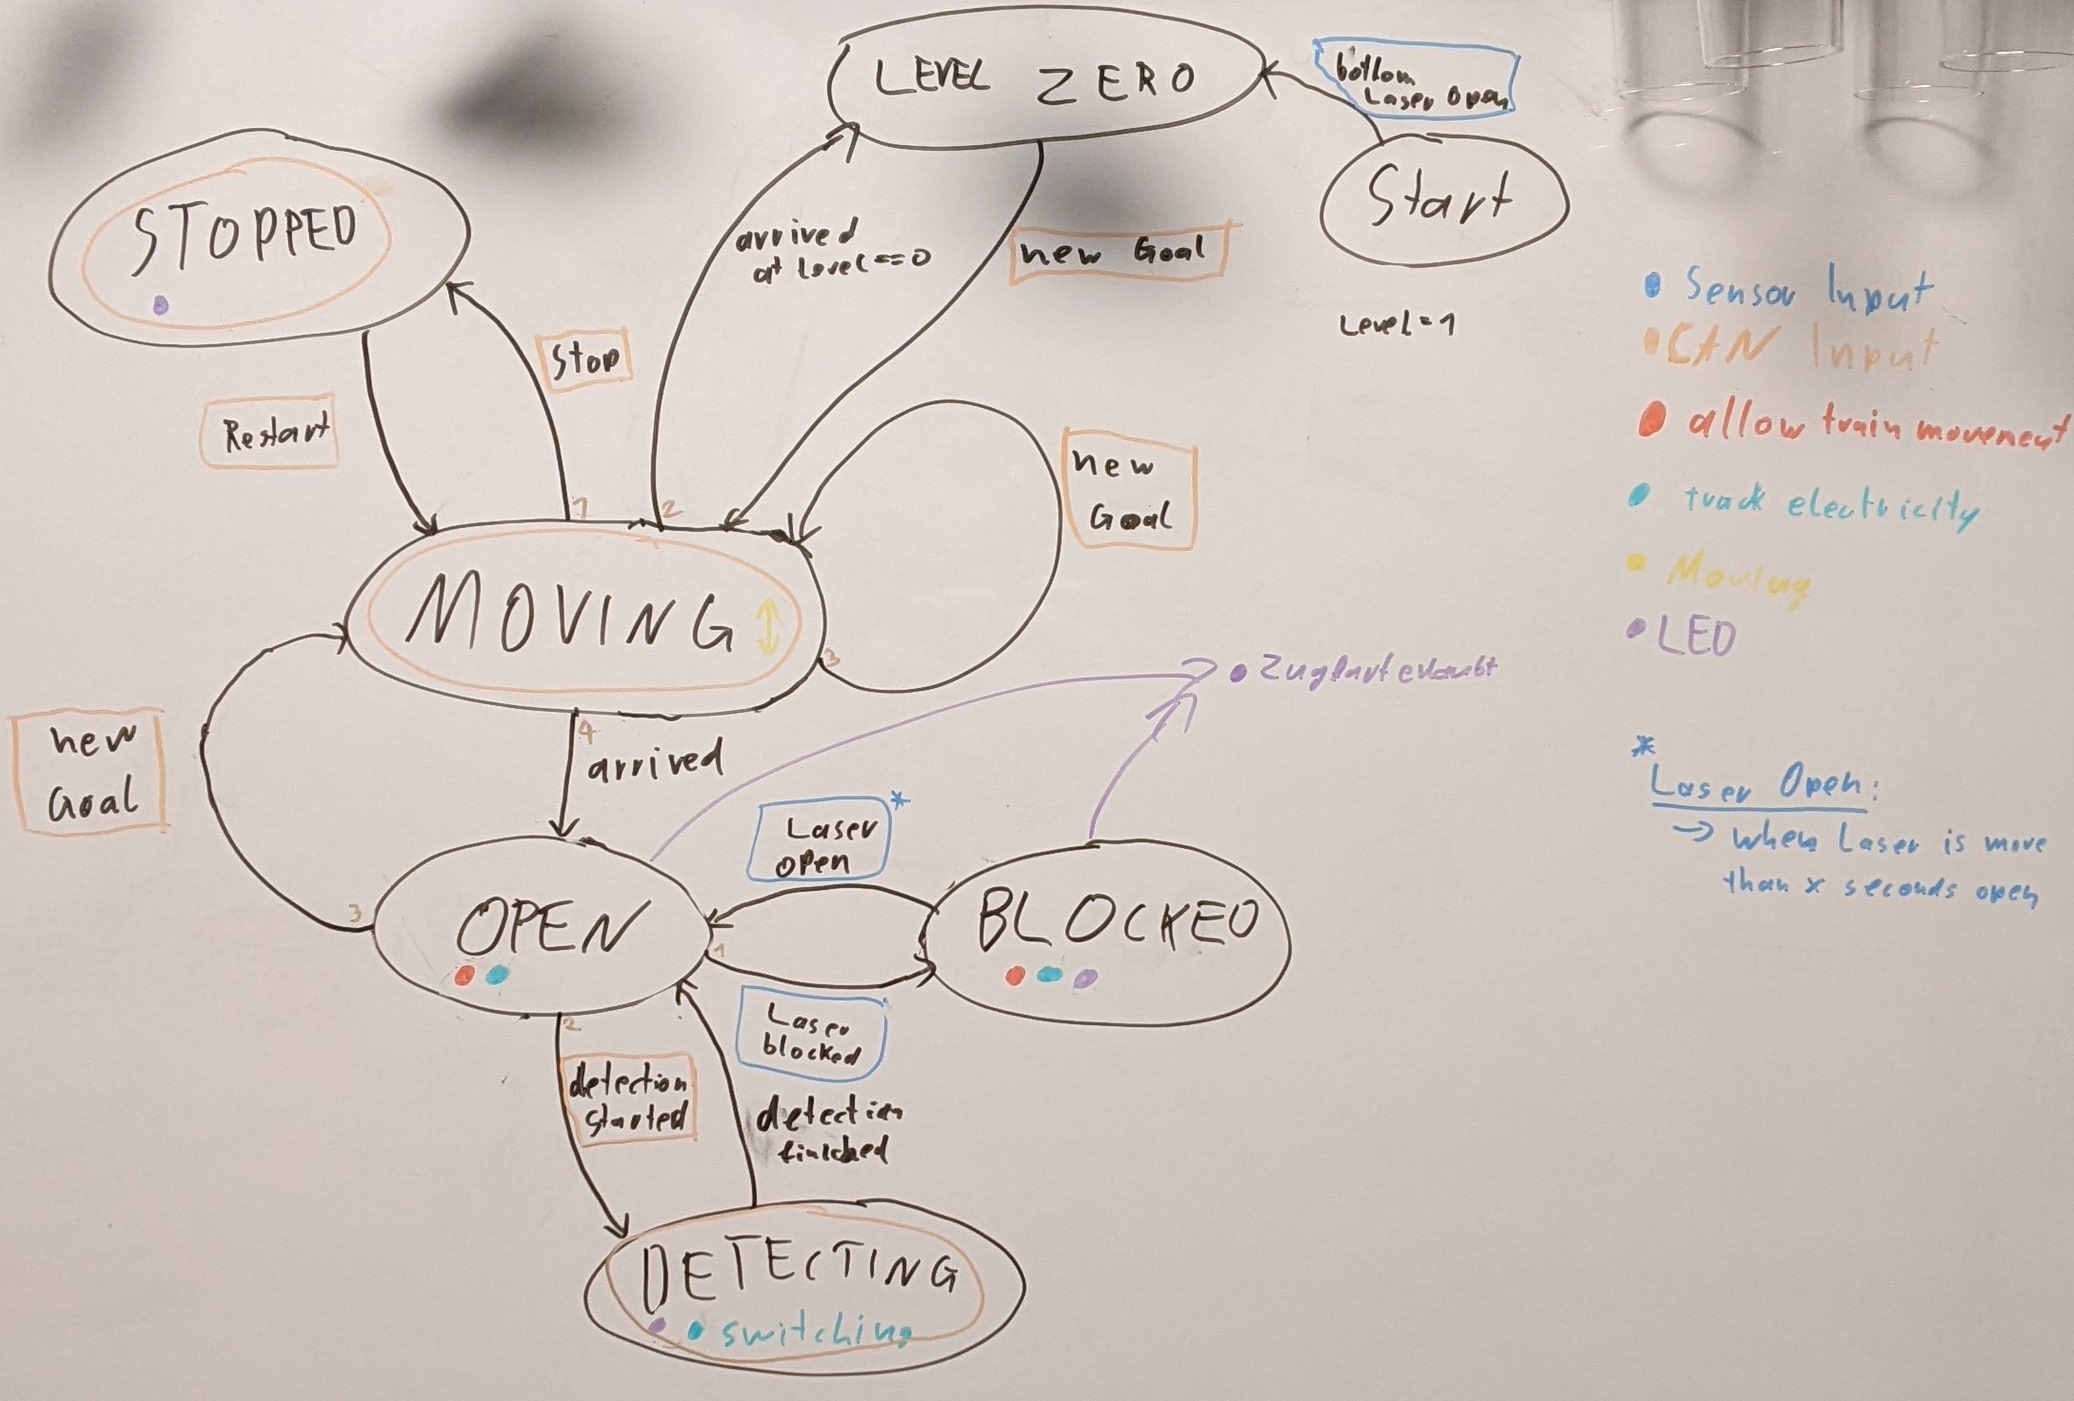 LEVEL ZERO
bottom
Laser Open
Start
Level=1
STOPPED
arrived
at Level==0
new Goal
Stop
Restart
1
2
new
Goal
MOVING
3
4
arrived
new
Goal
Laser
open
*
OPEN
3
1
2
BLOCKED
Laser
blocked
detection
started
detection
finished
DETECTING
switching
Sensor Input
CAN Input
allow train movement
track electricity
Moving
LED
*
Laser Open:
→ when Laser is more
than x seconds open